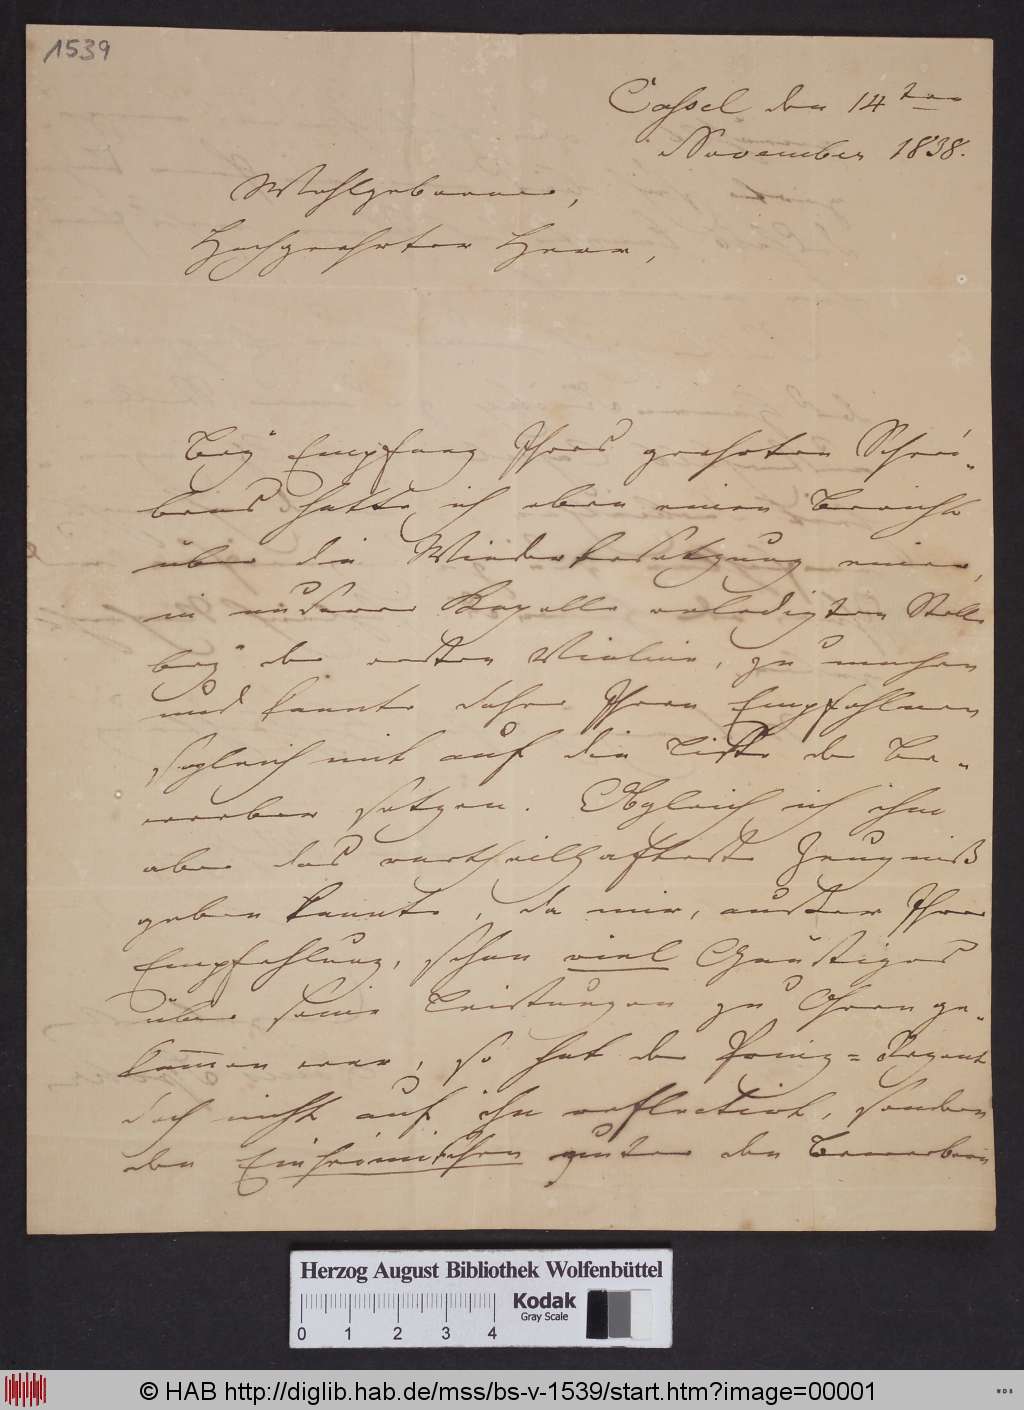 1539
Cassel den 14ten
November 1838.
Wohlgeborner,
Hochgeehrter Herr,
Bey Empfang Ihres geehrten Schrei-
bens hatte ich eben einen Bericht
über die Wiederbesetzung einer,
in unserer Kapelle erledigten Stelle
bey der ersten Violine, zu machen
und konnte daher Ihren Empfohlnen
sogleich mit auf die Liste der Be-
werber setzen. Obgleich ich ihm
aber das vortheilhafteste Zeugniß
geben konnte, da mir, ausser Ihrer
Empfehlung, schon viel Günstiges
über seine Leistungen zu Ohren ge-
kommen war, so hat der Prinz-Regent
doch nicht auf ihn reflectirt, sondern
den Einheimischen unter den Bewerbern
Herzog August Bibliothek Wolfenbüttel
0 1 2 3 4
Kodak
Gray Scale
© HAB http://diglib.hab.de/mss/bs-v-1539/start.htm?image=00001
WDB